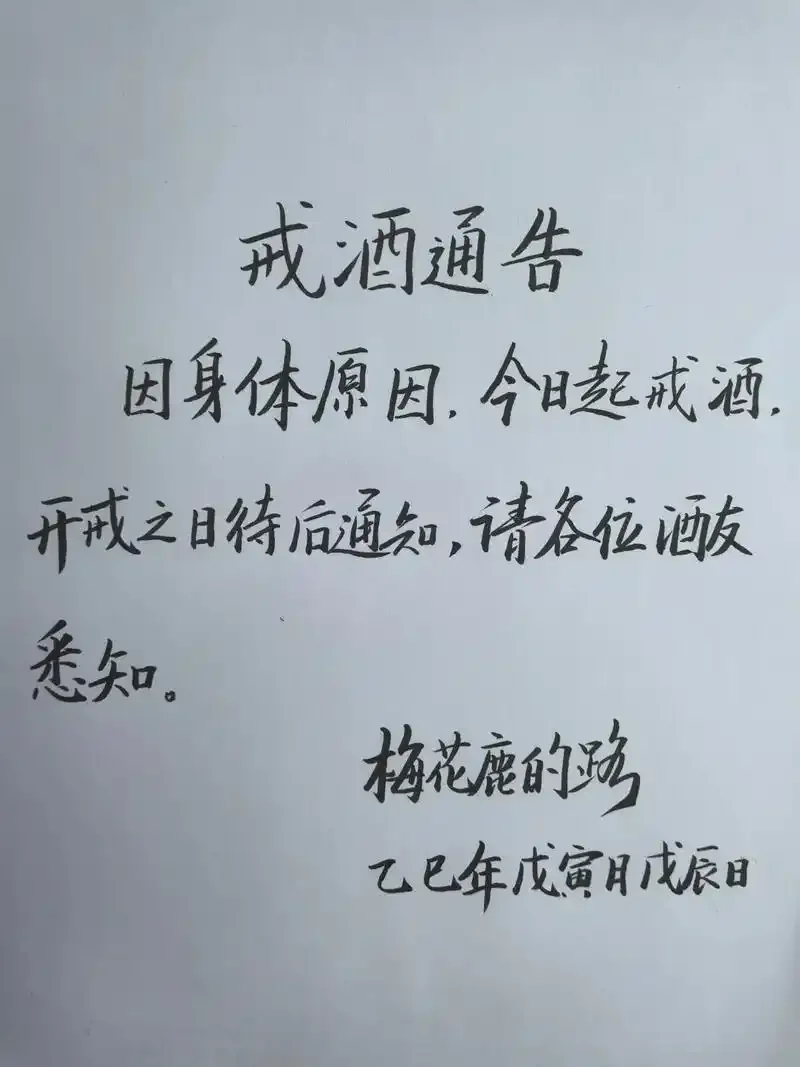 戒酒通告
因身体原因.今日起戒酒.
开戒之日待后通知,请各位酒友
悉知。
梅花鹿的路
乙巳年戊寅月戊辰日